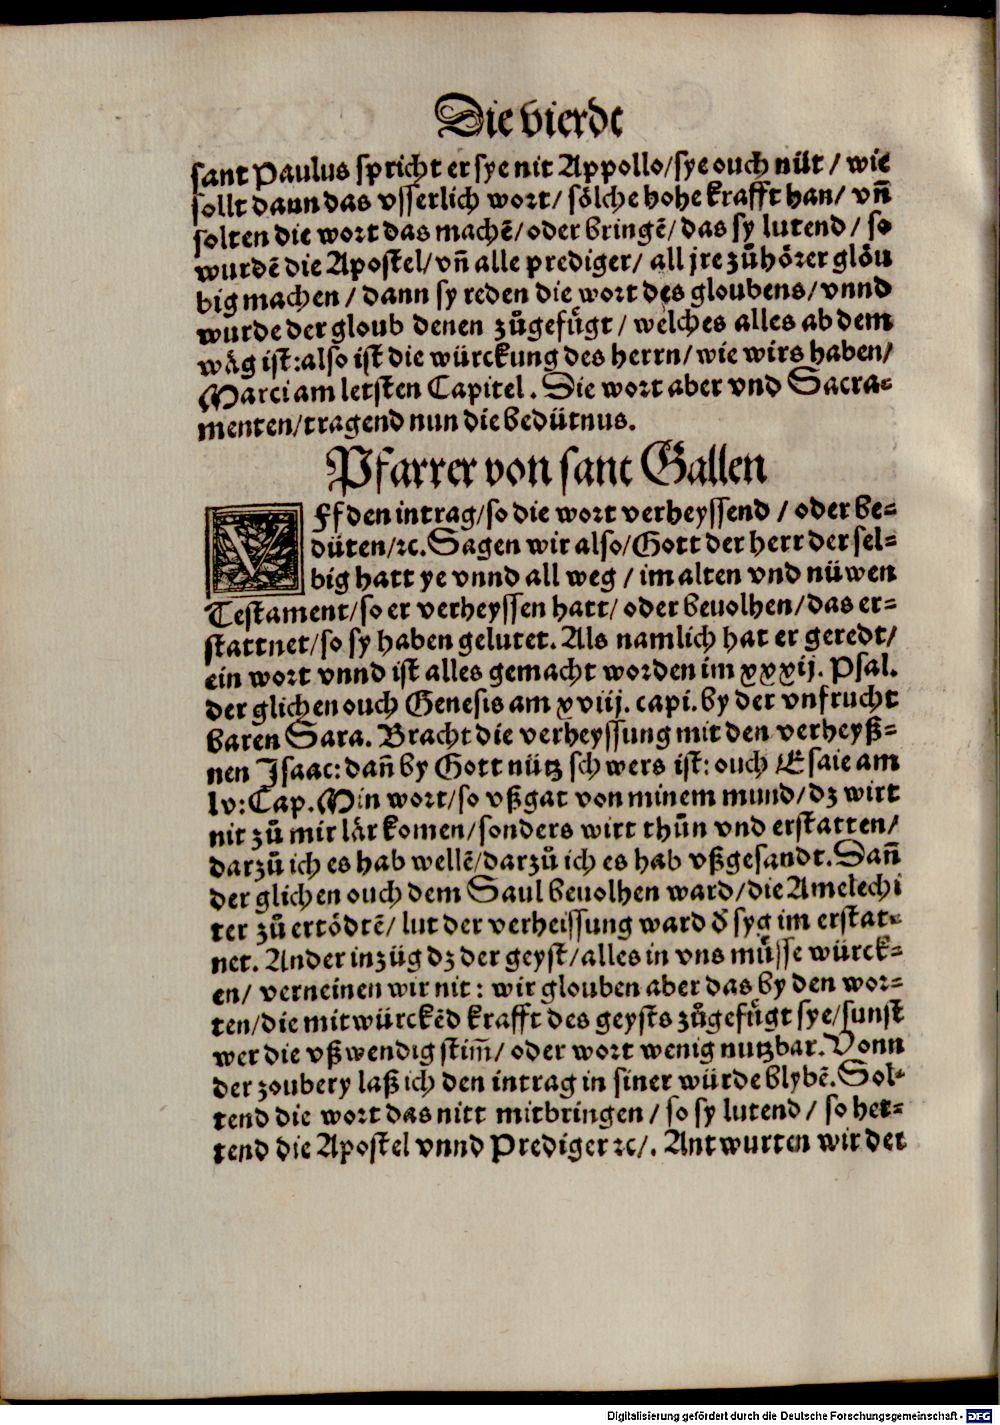 Die vierdt
sant Paulus spricht er sye nit Appollo/sye ouch nüt / wie
sollt dann das vsserlich wort/ sölche hohe krafft han/ vñ
solten die wort das machē/oder bringē/ das sy lutend/ so
wurdē die Apostel/vñ alle prediger/ all jre zůhörer glöu
big machen / dann sy reden die wort des gloubens/vnnd
wurde der gloub denen zůgefůgt / welches alles ab dem
wäg ist:also ist die würckung des herrn/wie wirs haben/
Marci am letsten Capitel. Die wort aber vnd Sacra-
menten/tragend nun die bedütnus.
Pfarrer von sant Gallen
VFf den intrag/so die wort verheyssend / oder be-
düten/ꝛc. Sagen wir also/Gott der herr der sel-
big hatt ye vnnd all weg / im alten vnd nüwen
Testament/so er verheyssen hatt/ oder beuolhen/das er-
stattnet/so sy haben gelutet. Als namlich hat er geredt/
ein wort vnnd ist alles gemacht worden im xxxij. Psal.
der glichen ouch Genesis am xviij. capi. by der vnfrucht
baren Sara. Bracht die verheyssung mit den verheyß-
nen Isaac: dañ by Gott nütz schwers ist: ouch Esaie am
lv: Cap. Min wort/so vßgat von minem mund/dz wirt
nit zů mir lär komen/sonders wirt thůn vnd erstatten/
darzů ich es hab wellē/darzů ich es hab vßgesandt. Dañ
der glichen ouch dem Saul beuolhen ward/die Amelechi
ter zů ertödtē/ lut der verheissung ward d̕ syg im erstat-
net. Ander inzüg dz der geyst/alles in vns müsse würck-
en/ verneinen wir nit : wir glouben aber das by den wor-
ten/die mitwürckēd krafft des geysts zůgefůgt sye/sunst
wer die vßwendig stim̄/ oder wort wenig nutzbar. Vonn
der zoubery laß ich den intrag in siner würde blybē. Sol-
tend die wort das nitt mitbringen / so sy lutend / so het-
tend die Apostel vnnd Prediger ꝛc/. Antwurten wir der
Digitalisierung gefördert durch die Deutsche Forschungsgemeinschaft - DFG